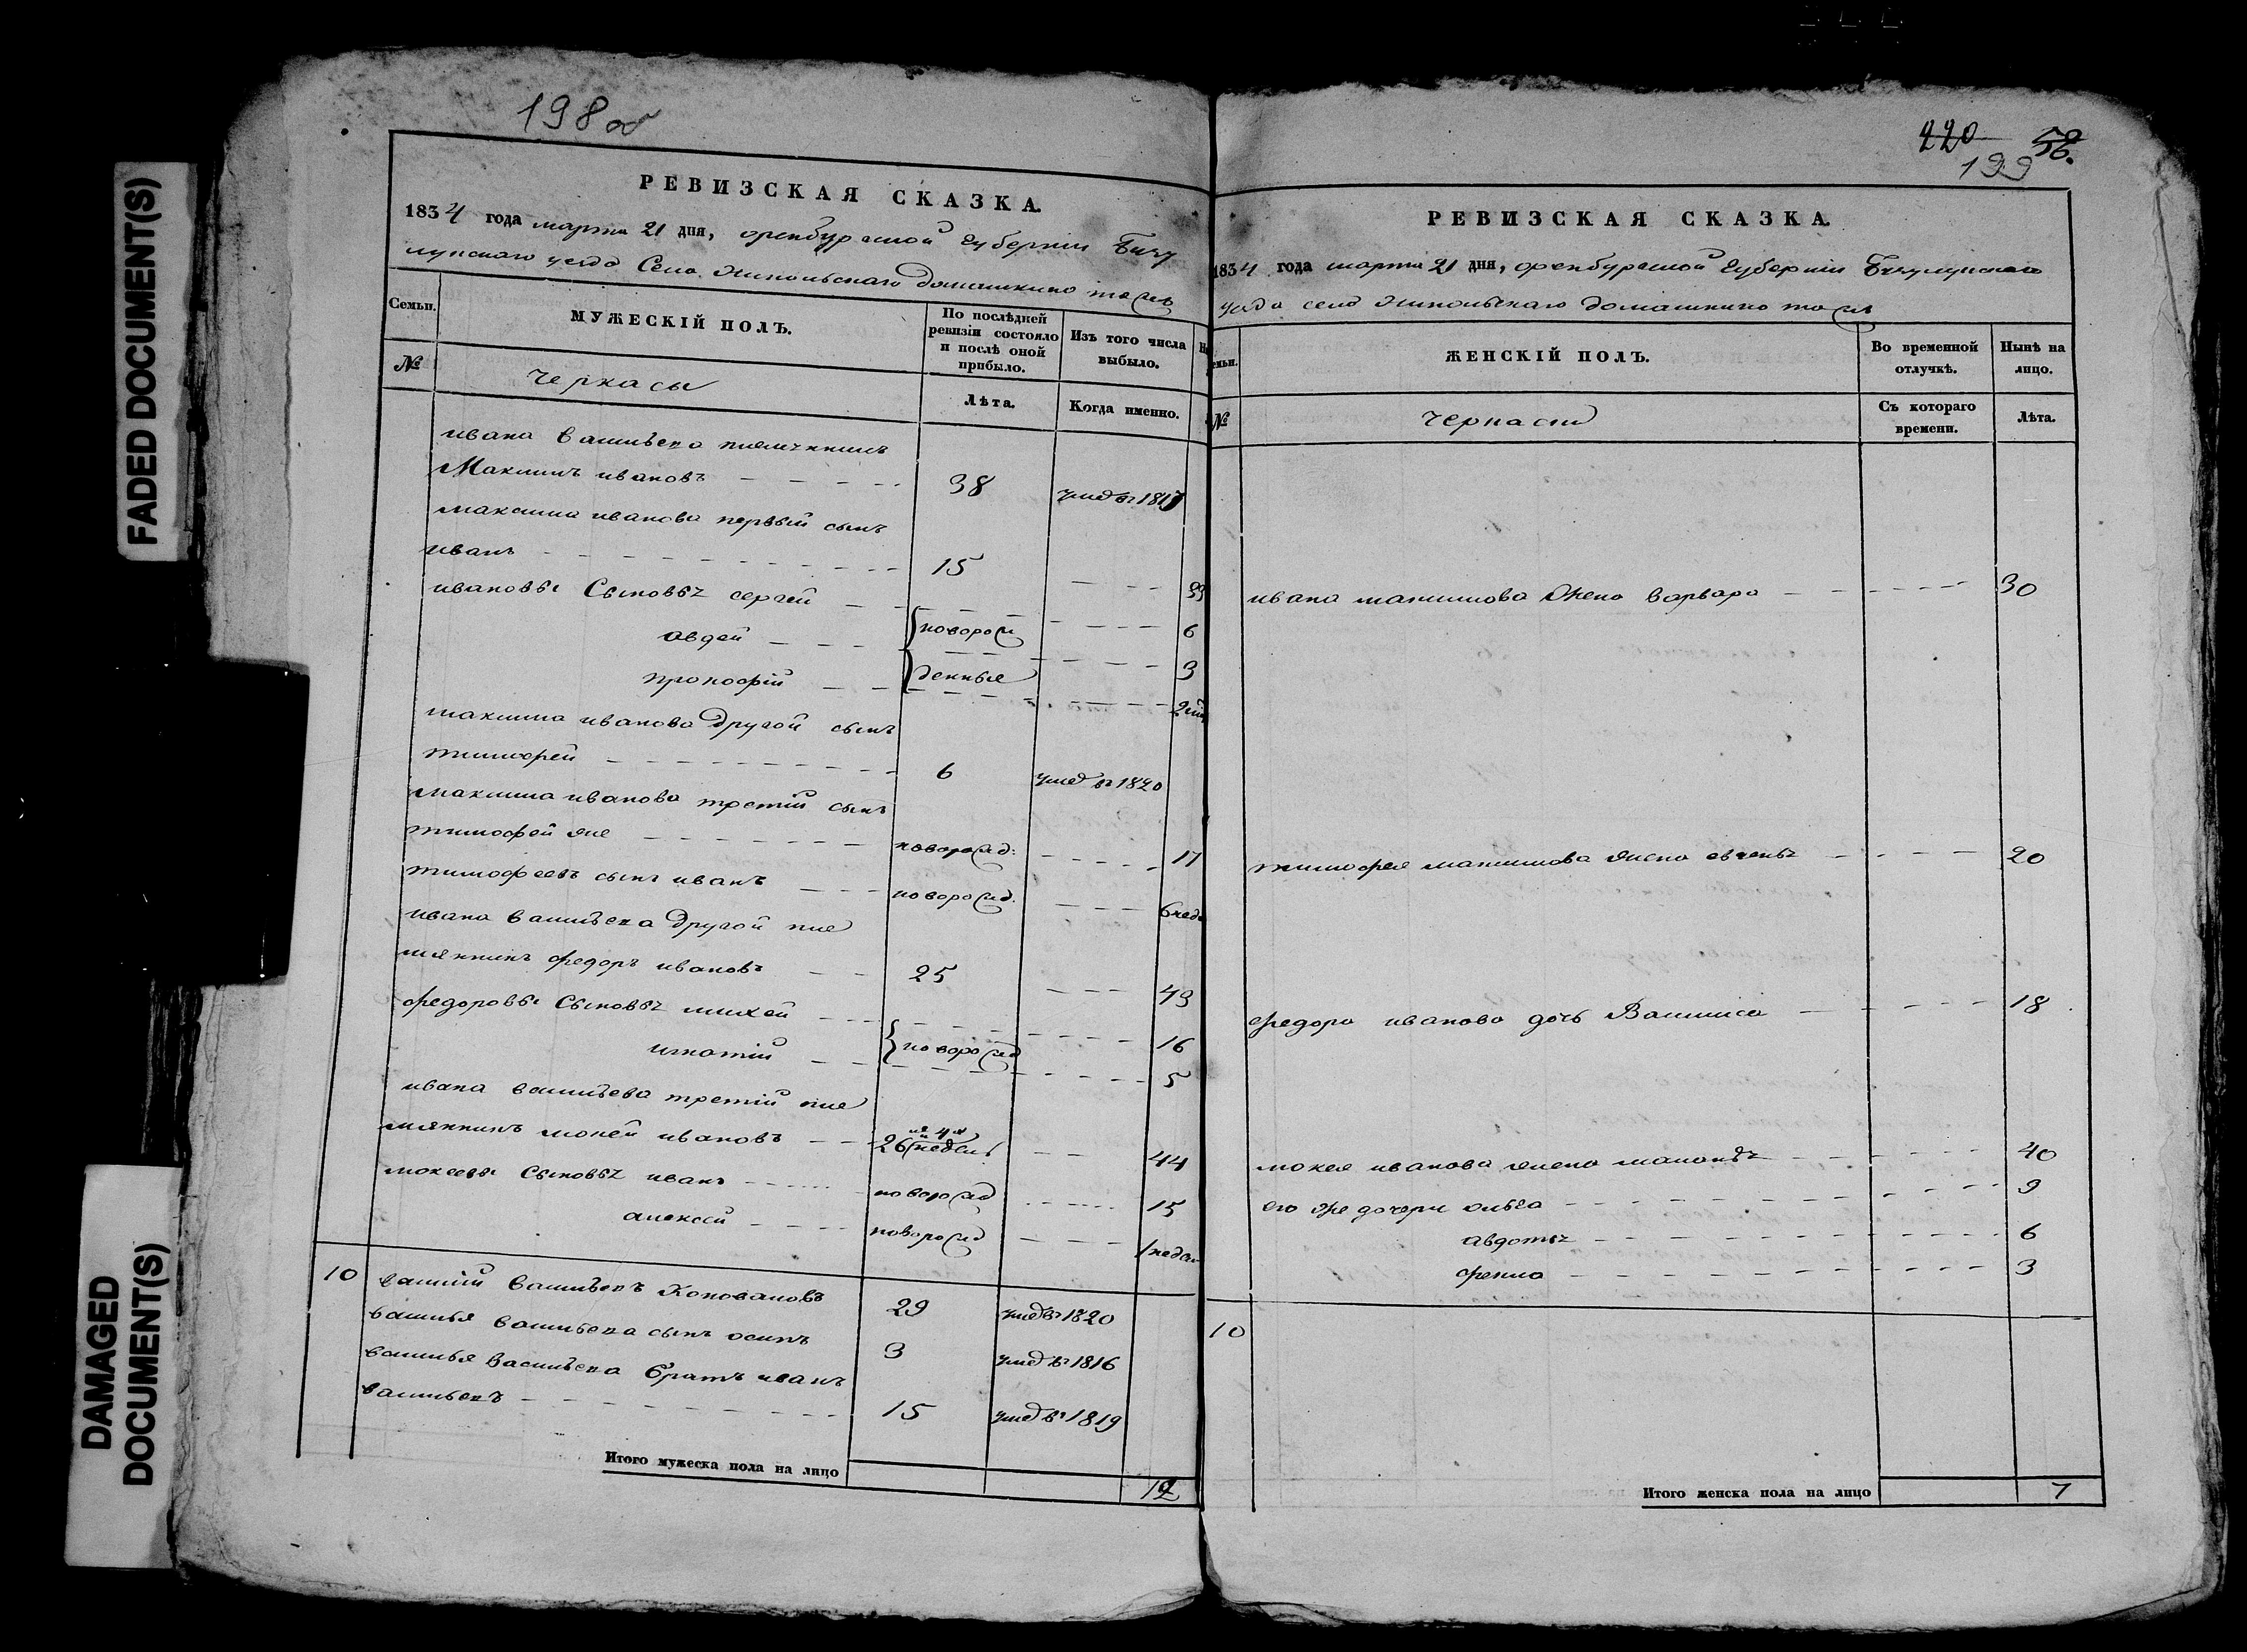 FADED DOCUMENT(S)
DAMAGED
DOCUMENT(S)
198об
РЕВИЗСКАЯ СКАЗКА.
1834 года марта 21 дня, оренбургской губерніи Бузу
лукскаго уезда Села Никольскаго Домашкино то ж
Семьи.
МУЖЕСКІЙ ПОЛЪ.
По послѣдней ревизіи состояло и послѣ оной прибыло.
Изъ того числа выбыло.
№
Черкасы
Лѣта.
Когда именно.
ивана васильева племянникъ
Максимъ ивановъ 38 умер въ 1817
максима иванова первый сынъ
иванъ 15 33
ивановы Сыновья сергей новорож 6
авдей денныя 3
прокофій
максима иванова Другой сынъ
тимофей 6 умер въ 1820
максима иванова третій сынъ
тимофей же новорожд: 17
тимофеевъ сынъ иванъ новорожд. 6 неде
ивана васильева Другой пле
мянникъ федоръ ивановъ 25 43
федоровы Сыновья михей 16
игнатій новорожд 5
ивана васильева третій пле
мянникъ мокей ивановъ 26 недель 44
мокеевы Сыновья иванъ новорожд 15
алексей новорожд 1 недели
10 василій васильевъ Коновалов 29 умер въ 1820
василья васильева сынъ осипъ 3 умер въ 1816
василья васильева братъ иванъ
васильевъ 15 умер въ 1819
Итого мужеска пола на лицо 12
220 58.
199
РЕВИЗСКАЯ СКАЗКА.
1834 года марта 21 дня, оренбургской губерніи Бузулукскаго
уезда села Никольскаго домашкино то ж
емьи.
ЖЕНСКІЙ ПОЛЪ.
Во временной отлучкѣ.
Нынѣ на лицо.
№
Черкасы
Съ котораго времени.
Лѣта.
ивана максимова Жена варвара 30
тимофея максимова жена 20
федора иванова дочь Василиса 18
мокея иванова жена 40
его же дочери ольга 9
авдотья 6
фекла 3
10
Итого женска пола на лицо 7